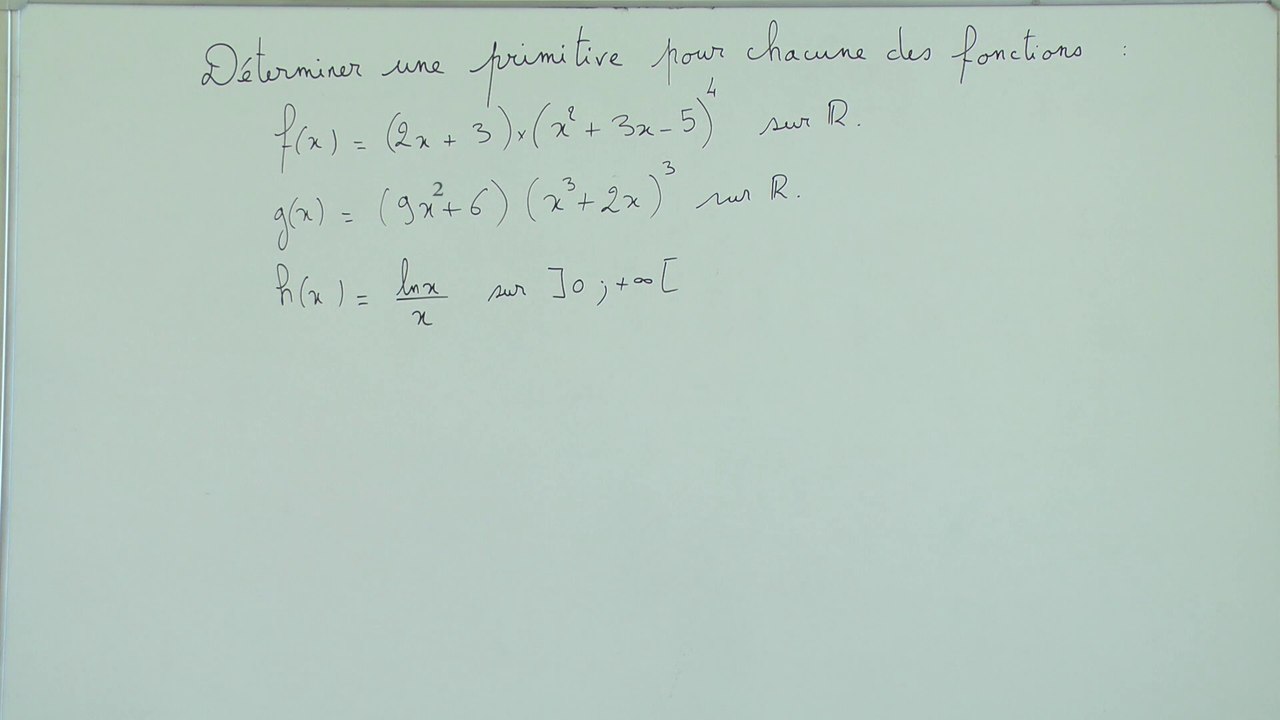 Déterminer une primitive pour chacune des fonctions :
f(x) = (2x + 3) × (x² + 3x - 5)⁴ sur ℝ.
g(x) = (9x² + 6) (x³ + 2x)³ sur ℝ.
h(x) = ln x / x sur ]0 ; +∞[